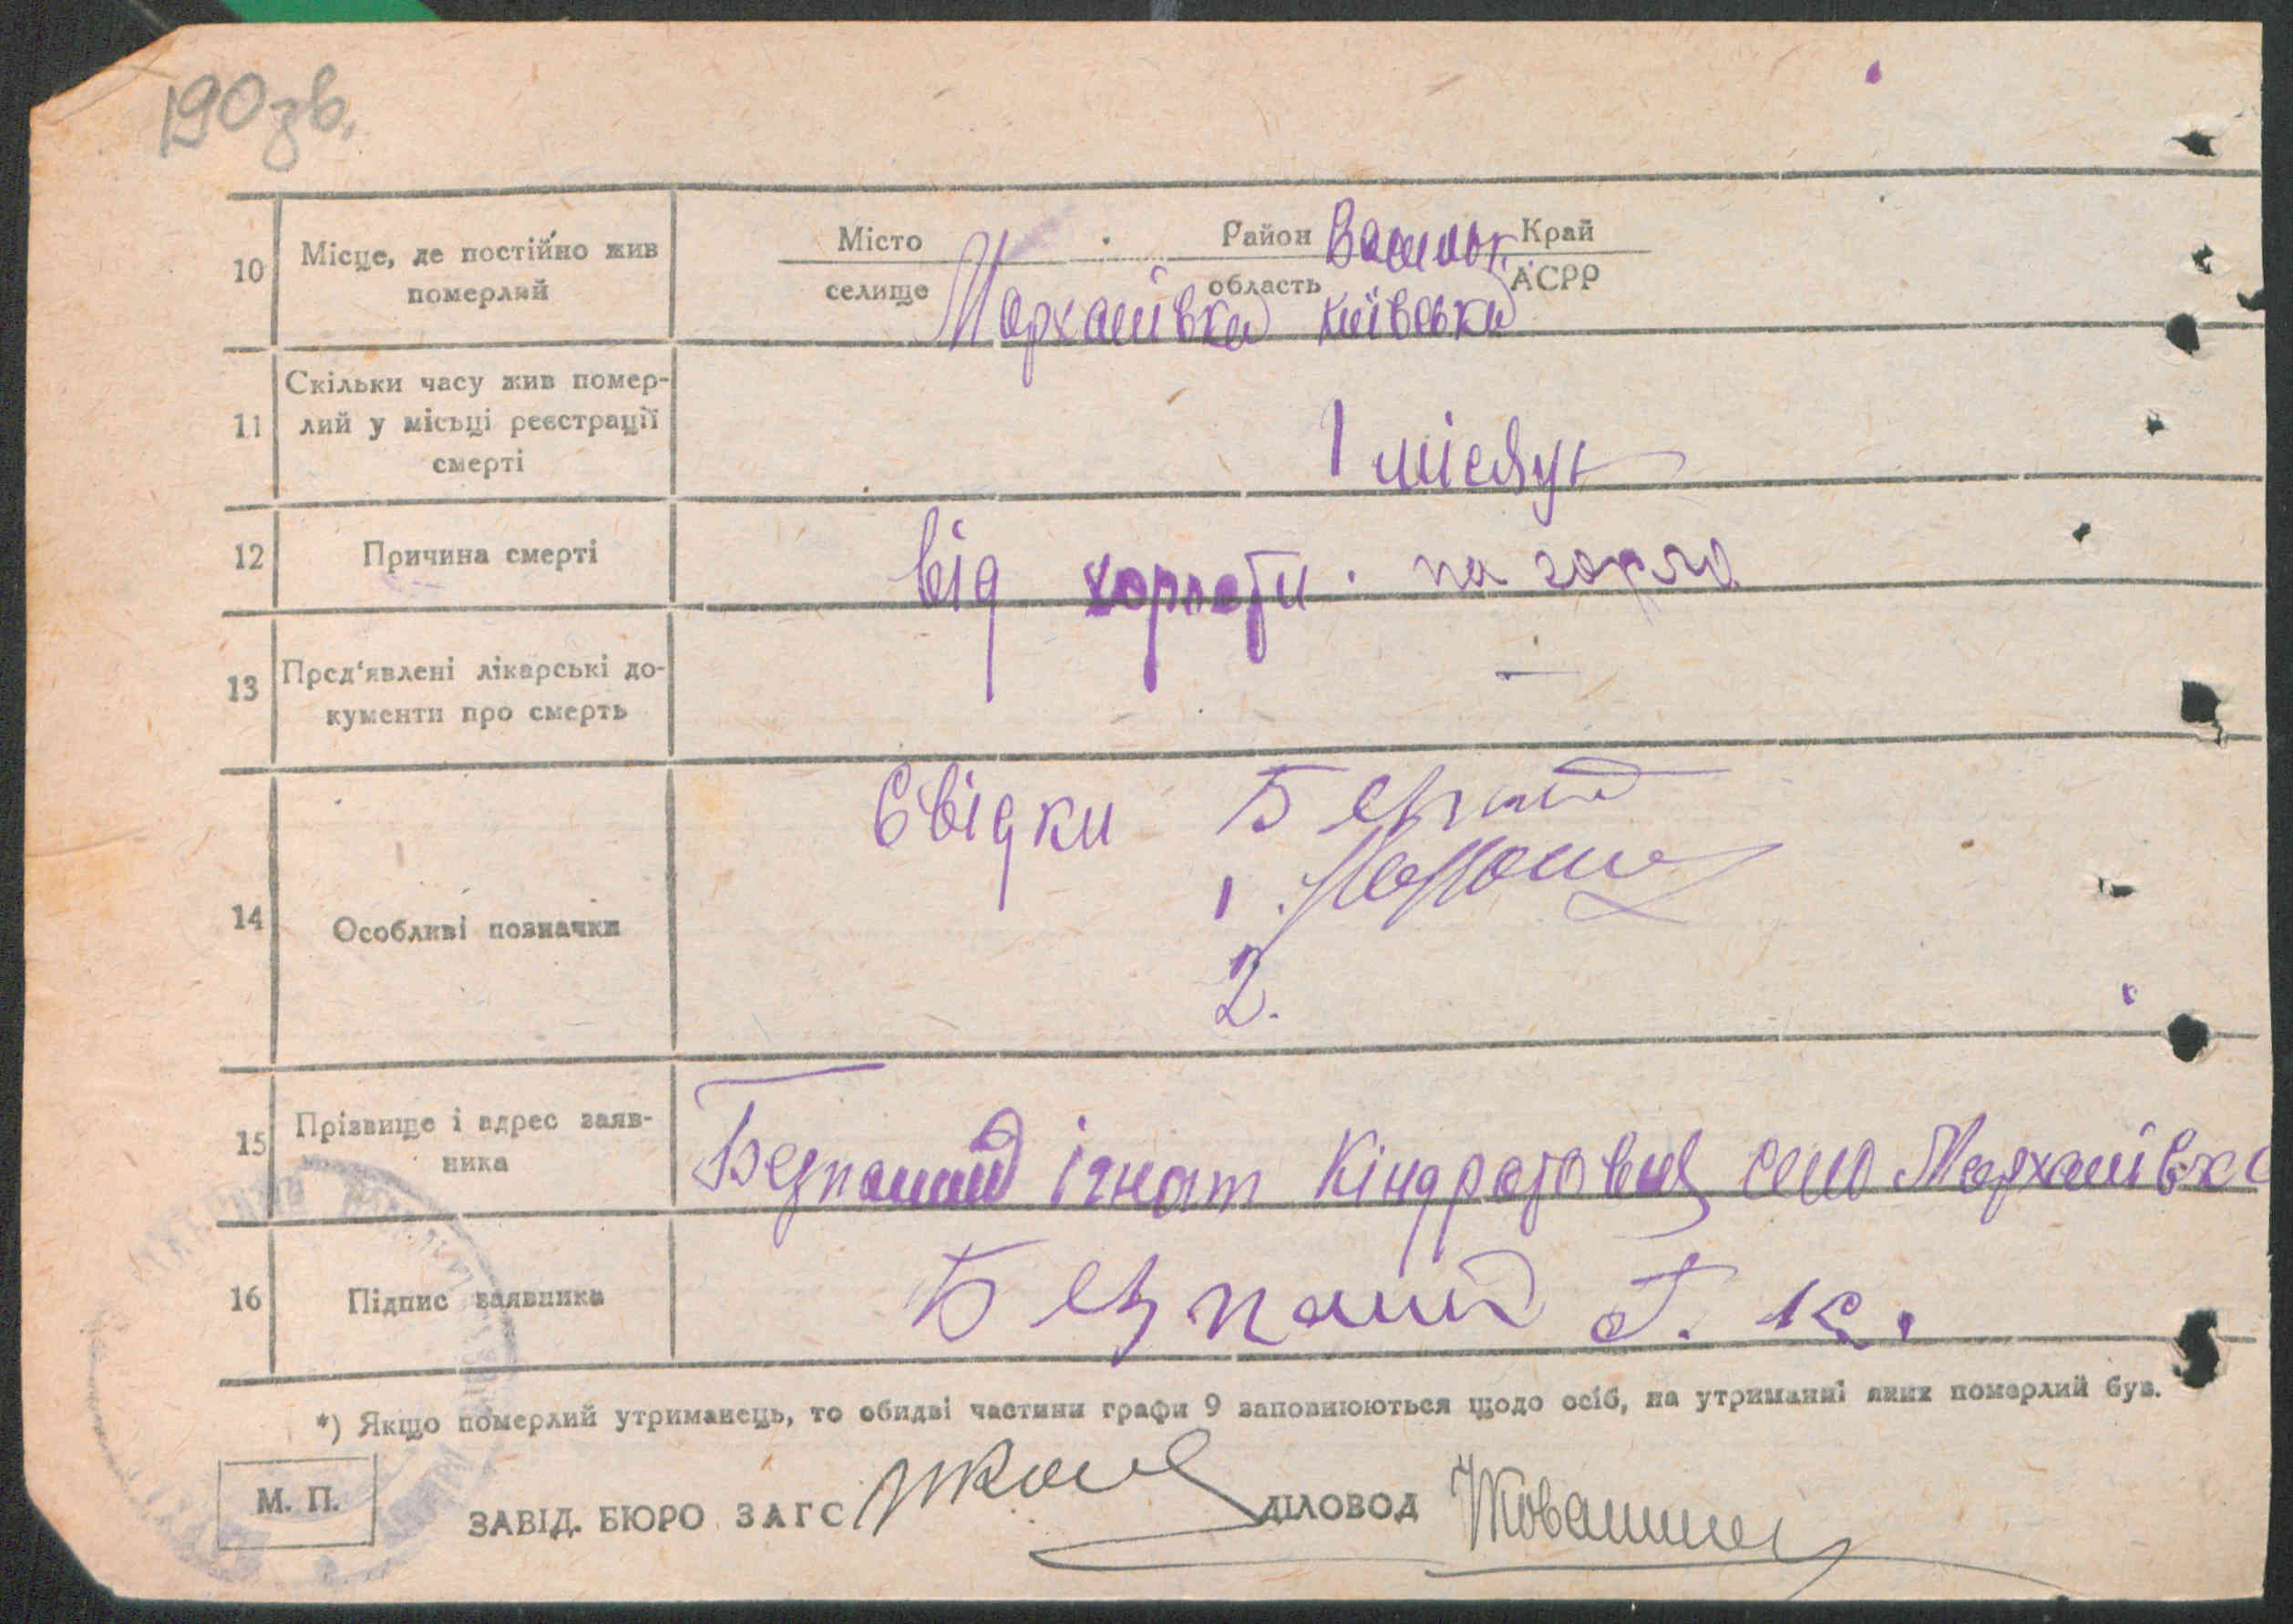 190 зв.
10 Місце, де постійно жив померлий
Місто Район Васильк. Край
селище Мархалівка область Київська АСРР
11 Скільки часу жив помер-
лий у місьці реєстрації
смерті
1 місяць
12 Причина смерті
від хорноти на горло
13 Пред'явлені лікарські до-
кументи про смерть
—
14 Особливі позначки
Свідки
1.
2.
15 Прізвище і адрес заяв-
ника
Безпалий ігнат Кіндратович село Мархалівка
16 Підпис заявника
Безпалий І. К.
*) Якщо померлий утриманець, то обидві частини графи 9 заповнюються щодо осіб, на утриманні яких померлий був.
М. П.
ЗАВІД. БЮРО ЗАГС ДІЛОВОД